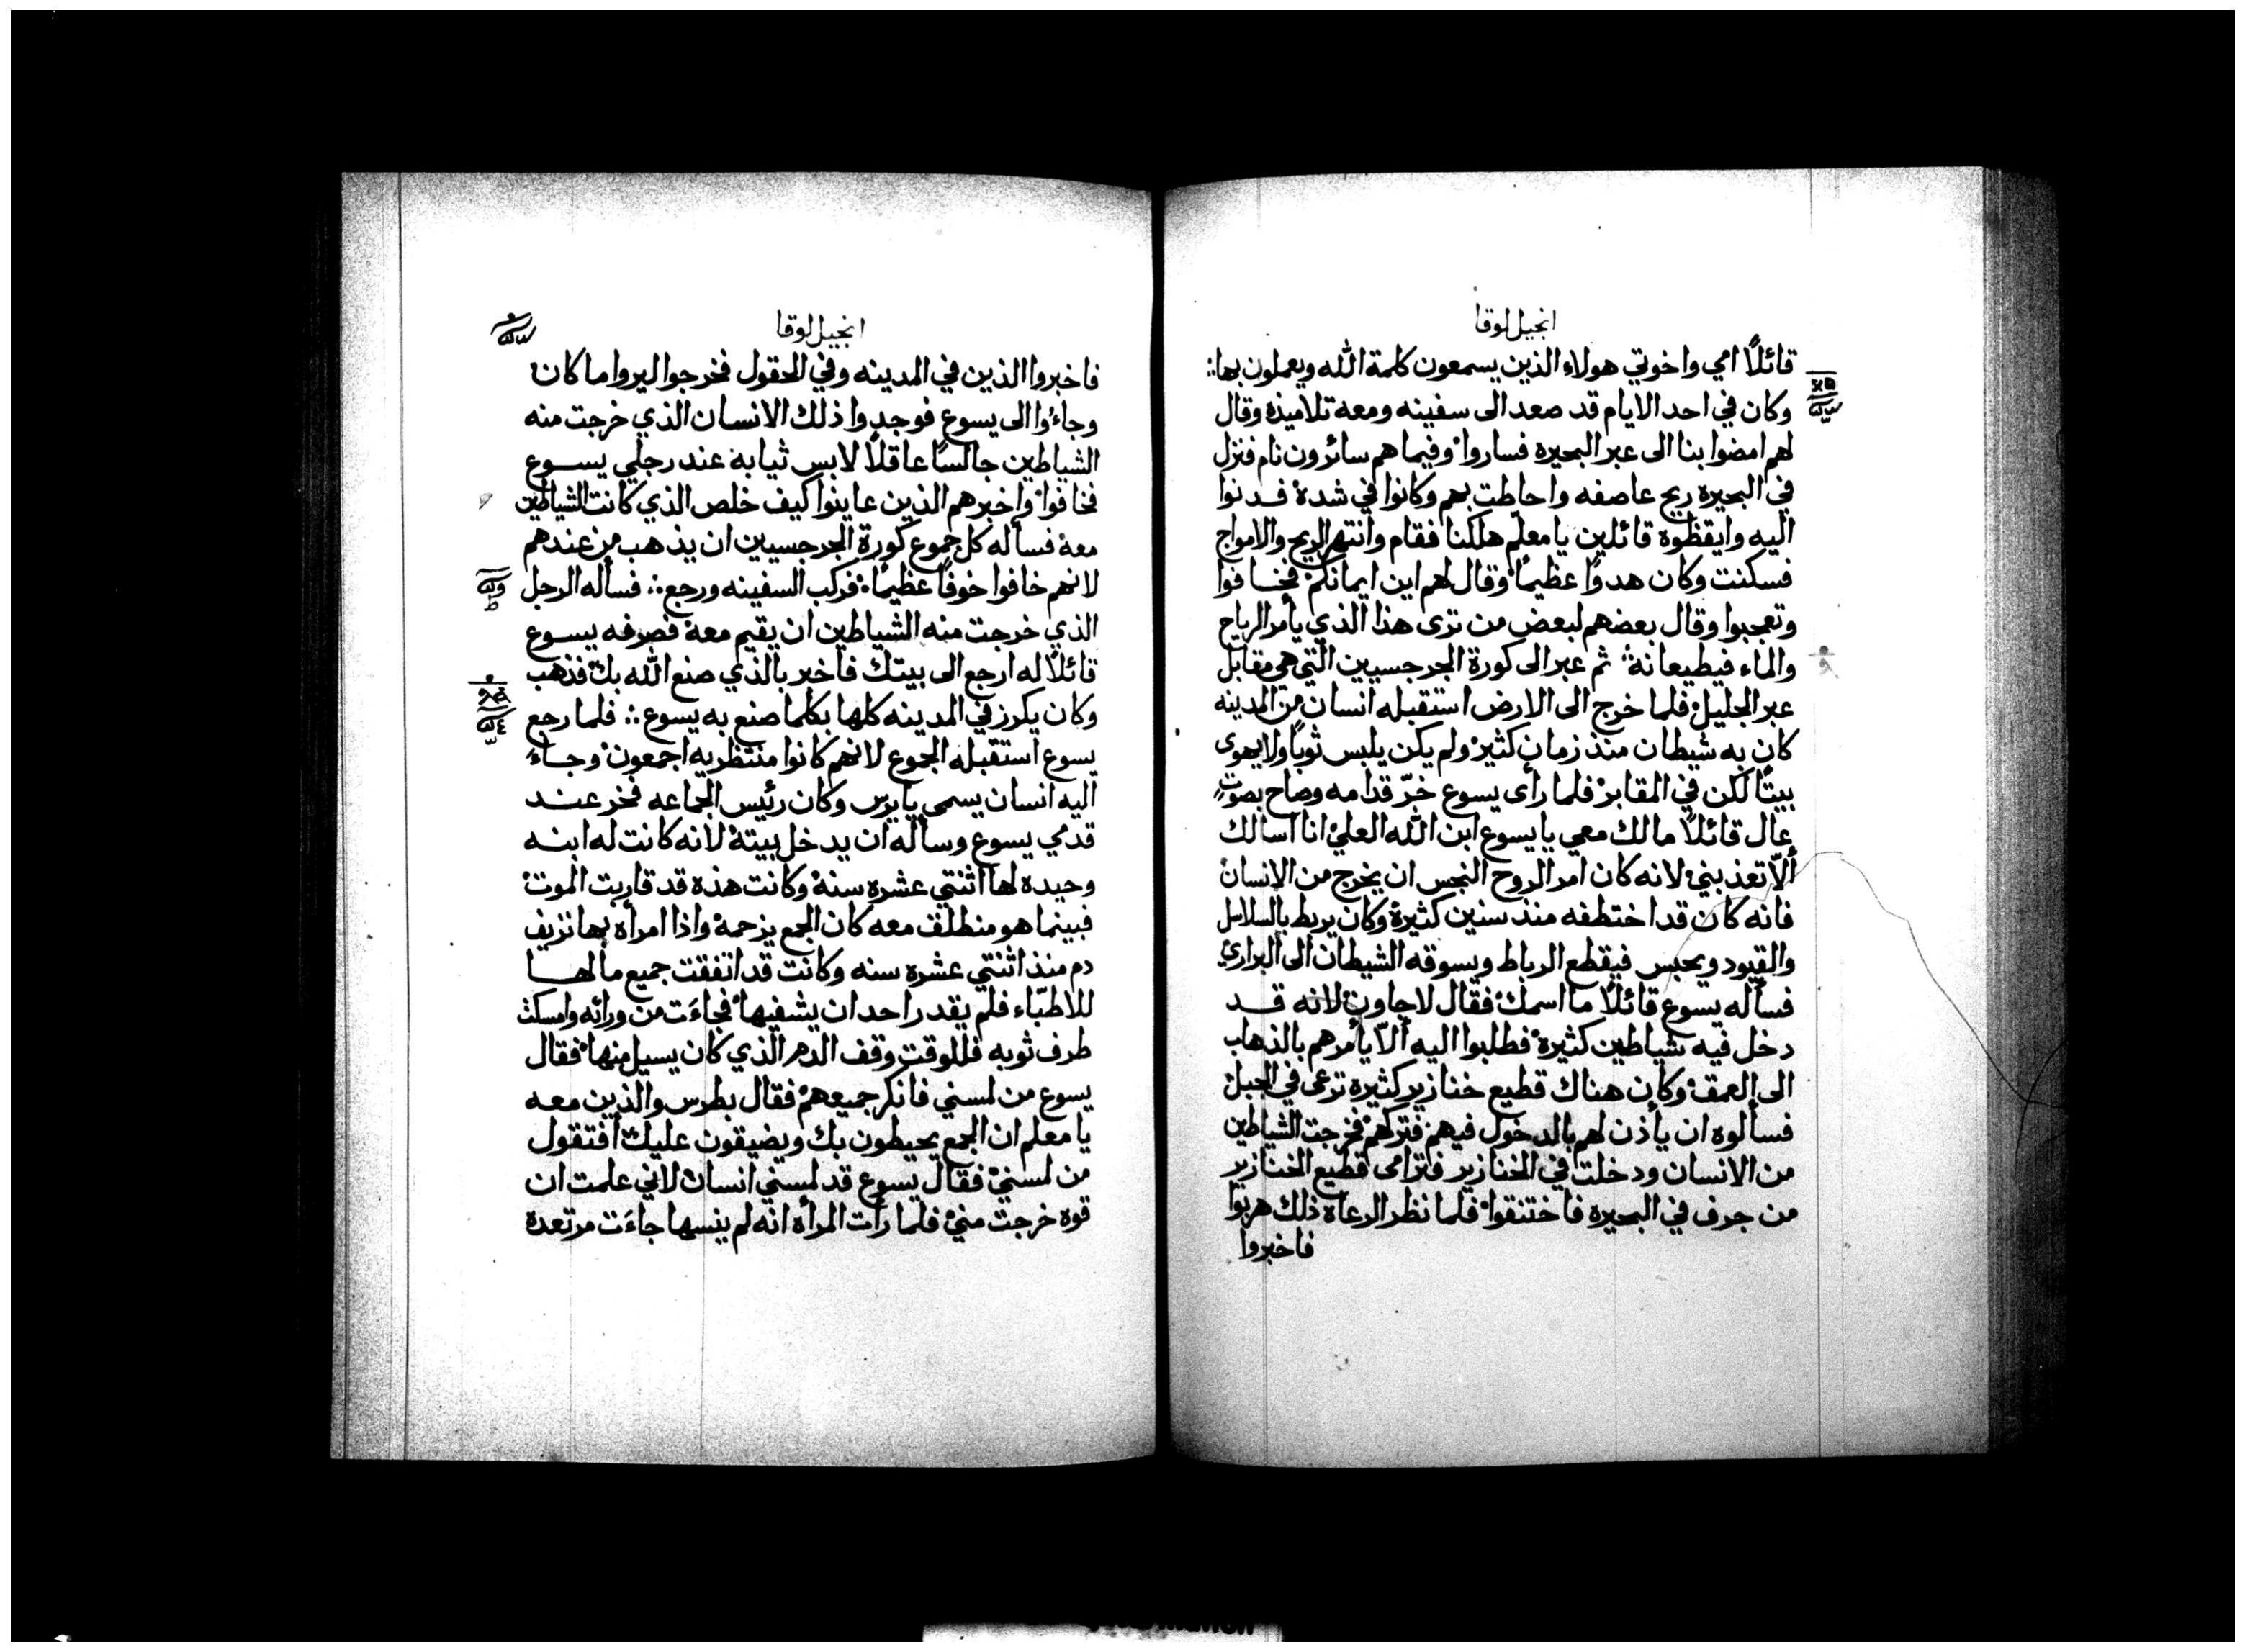 انجيل لوقا
قائلًا امي واخوتي هولاء الذين يسمعون كلمة الله ويعملون بها؛
وكان في احد الايام قد صعد الى سفينه ومعه تلاميذه وقال
لهم امضوا بنا الى عبر البحيره فساروا وفيما هم سائرون نام فنزل
في البحيره ريح عاصفه واحاطت بهم وكانوا في شدة فدنوا
اليه وايقظوه قائلين يا معلّم هلكنا فقام وانتهر الريح والامواج
فسكنت وكان هدوًا عظيمًا وقال لهم اين ايمانكم فخافوا
وتعجبوا وقال بعضهم لبعض من ترى هذا الذي يأمر الرياح
والماء فيطيعانه ثم عبر الى كورة الجرجسيين التي هي مقابل
عبر الجليل فلما خرج الى الارض استقبله انسان من المدينه
كان به شيطان منذ زمان كثير ولم يكن يلبس ثوبًا ولا يهوى
بيتًا لكن في المقابر فلما رأى يسوع خرّ قدامه وصاح بصوتٍ
عال قائلًا ما لك معي يا يسوع ابن الله العلي انا اسالك
ألّا تعذبني لانه كان امر الروح النجس ان يخرج من الانسان
فانه كان قد اختطفه منذ سنين كثيرة وكان يربط بالسلاسل
والقيود ويحبس فيقطع الرباط ويسوقه الشيطان الى البراري
فسأله يسوع قائلًا ما اسمك فقال لاجاون لانه قد
دخل فيه شياطين كثيرة فطلبوا اليه ألّا يأمرهم بالذهاب
الى العمق وكان هناك قطيع خنازير كثيرة ترعى في الجبل
فسألوه ان يأذن لهم بالدخول فيهم فتركهم فخرجت الشياطين
من الانسان ودخلت في الخنازير فترامى قطيع الخنازير
من جرف في البحيره فاختنقوا فلما نظر الرعاة ذلك هربوا
فاخبروا
انجيل لوقا
فاخبروا الذين في المدينه وفي الحقول فخرجوا ليروا ما كان
وجاءوا الى يسوع فوجدوا ذلك الانسان الذي خرجت منه
الشياطين جالسًا عاقلًا لابس ثيابه عند رجلي يسوع
فخافوا واخبرهم الذين عاينوا كيف خلص الذي كانت الشياطين
معه فسأله كل جموع كورة الجرجسيين ان يذهب من عندهم
لانهم خافوا خوفًا عظيمًا فركب السفينه ورجع؛ فسأله الرجل
الذي خرجت منه الشياطين ان يقيم معه فصرفه يسوع
قائلًا له ارجع الى بيتك فاخبر بالذي صنع الله بك فذهب
وكان يكرز في المدينه كلها بكلما صنع به يسوع؛ فلما رجع
يسوع استقبله الجموع لانهم كانوا منتظريه اجمعون وجاء
اليه انسان يسمى يايرس وكان رئيس الجماعه فخر عند
قدمي يسوع وسأله ان يدخل بيته لانه كانت له ابنه
وحيده لها اثنتي عشره سنه وكانت هذه قد قاربت الموت
فبينما هو منطلق معه كان الجمع يزحمه واذا امرأه بها نزيف
دم منذ اثنتي عشره سنه وكانت قد انفقت جميع مالها
للاطبّاء فلم يقدر احد ان يشفيها فجاءَت من ورائه وامسكت
طرف ثوبه فللوقت وقف الدم الذي كان يسيل منها فقال
يسوع من لمسني فانكر جميعهم فقال بطرس والذين معه
يا معلم ان الجمع يحيطون بك ويضيقون عليك أفتقول
من لمسني فقال يسوع قد لمسني انسان لاني علمت ان
قوه خرجت مني فلما رأت المرأه انه لم ينسها جاءَت مرتعدة